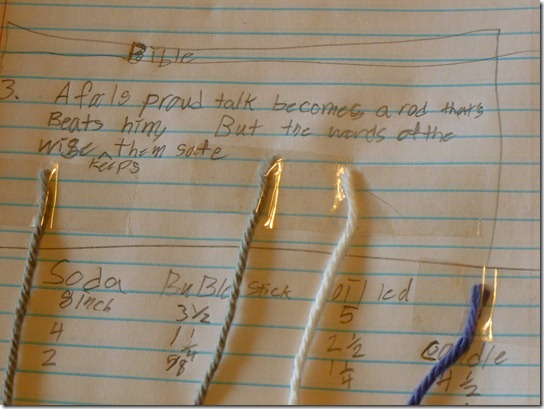 Bible
3. A fools proud talk becomes a rod thats
Beats him, But the words of the
wise keeps them safe
Soda BuBle Stick oil
8 inch 3 1/2 5
4 2 1/2 candle
2 5/8 1 1/4 4 1/2